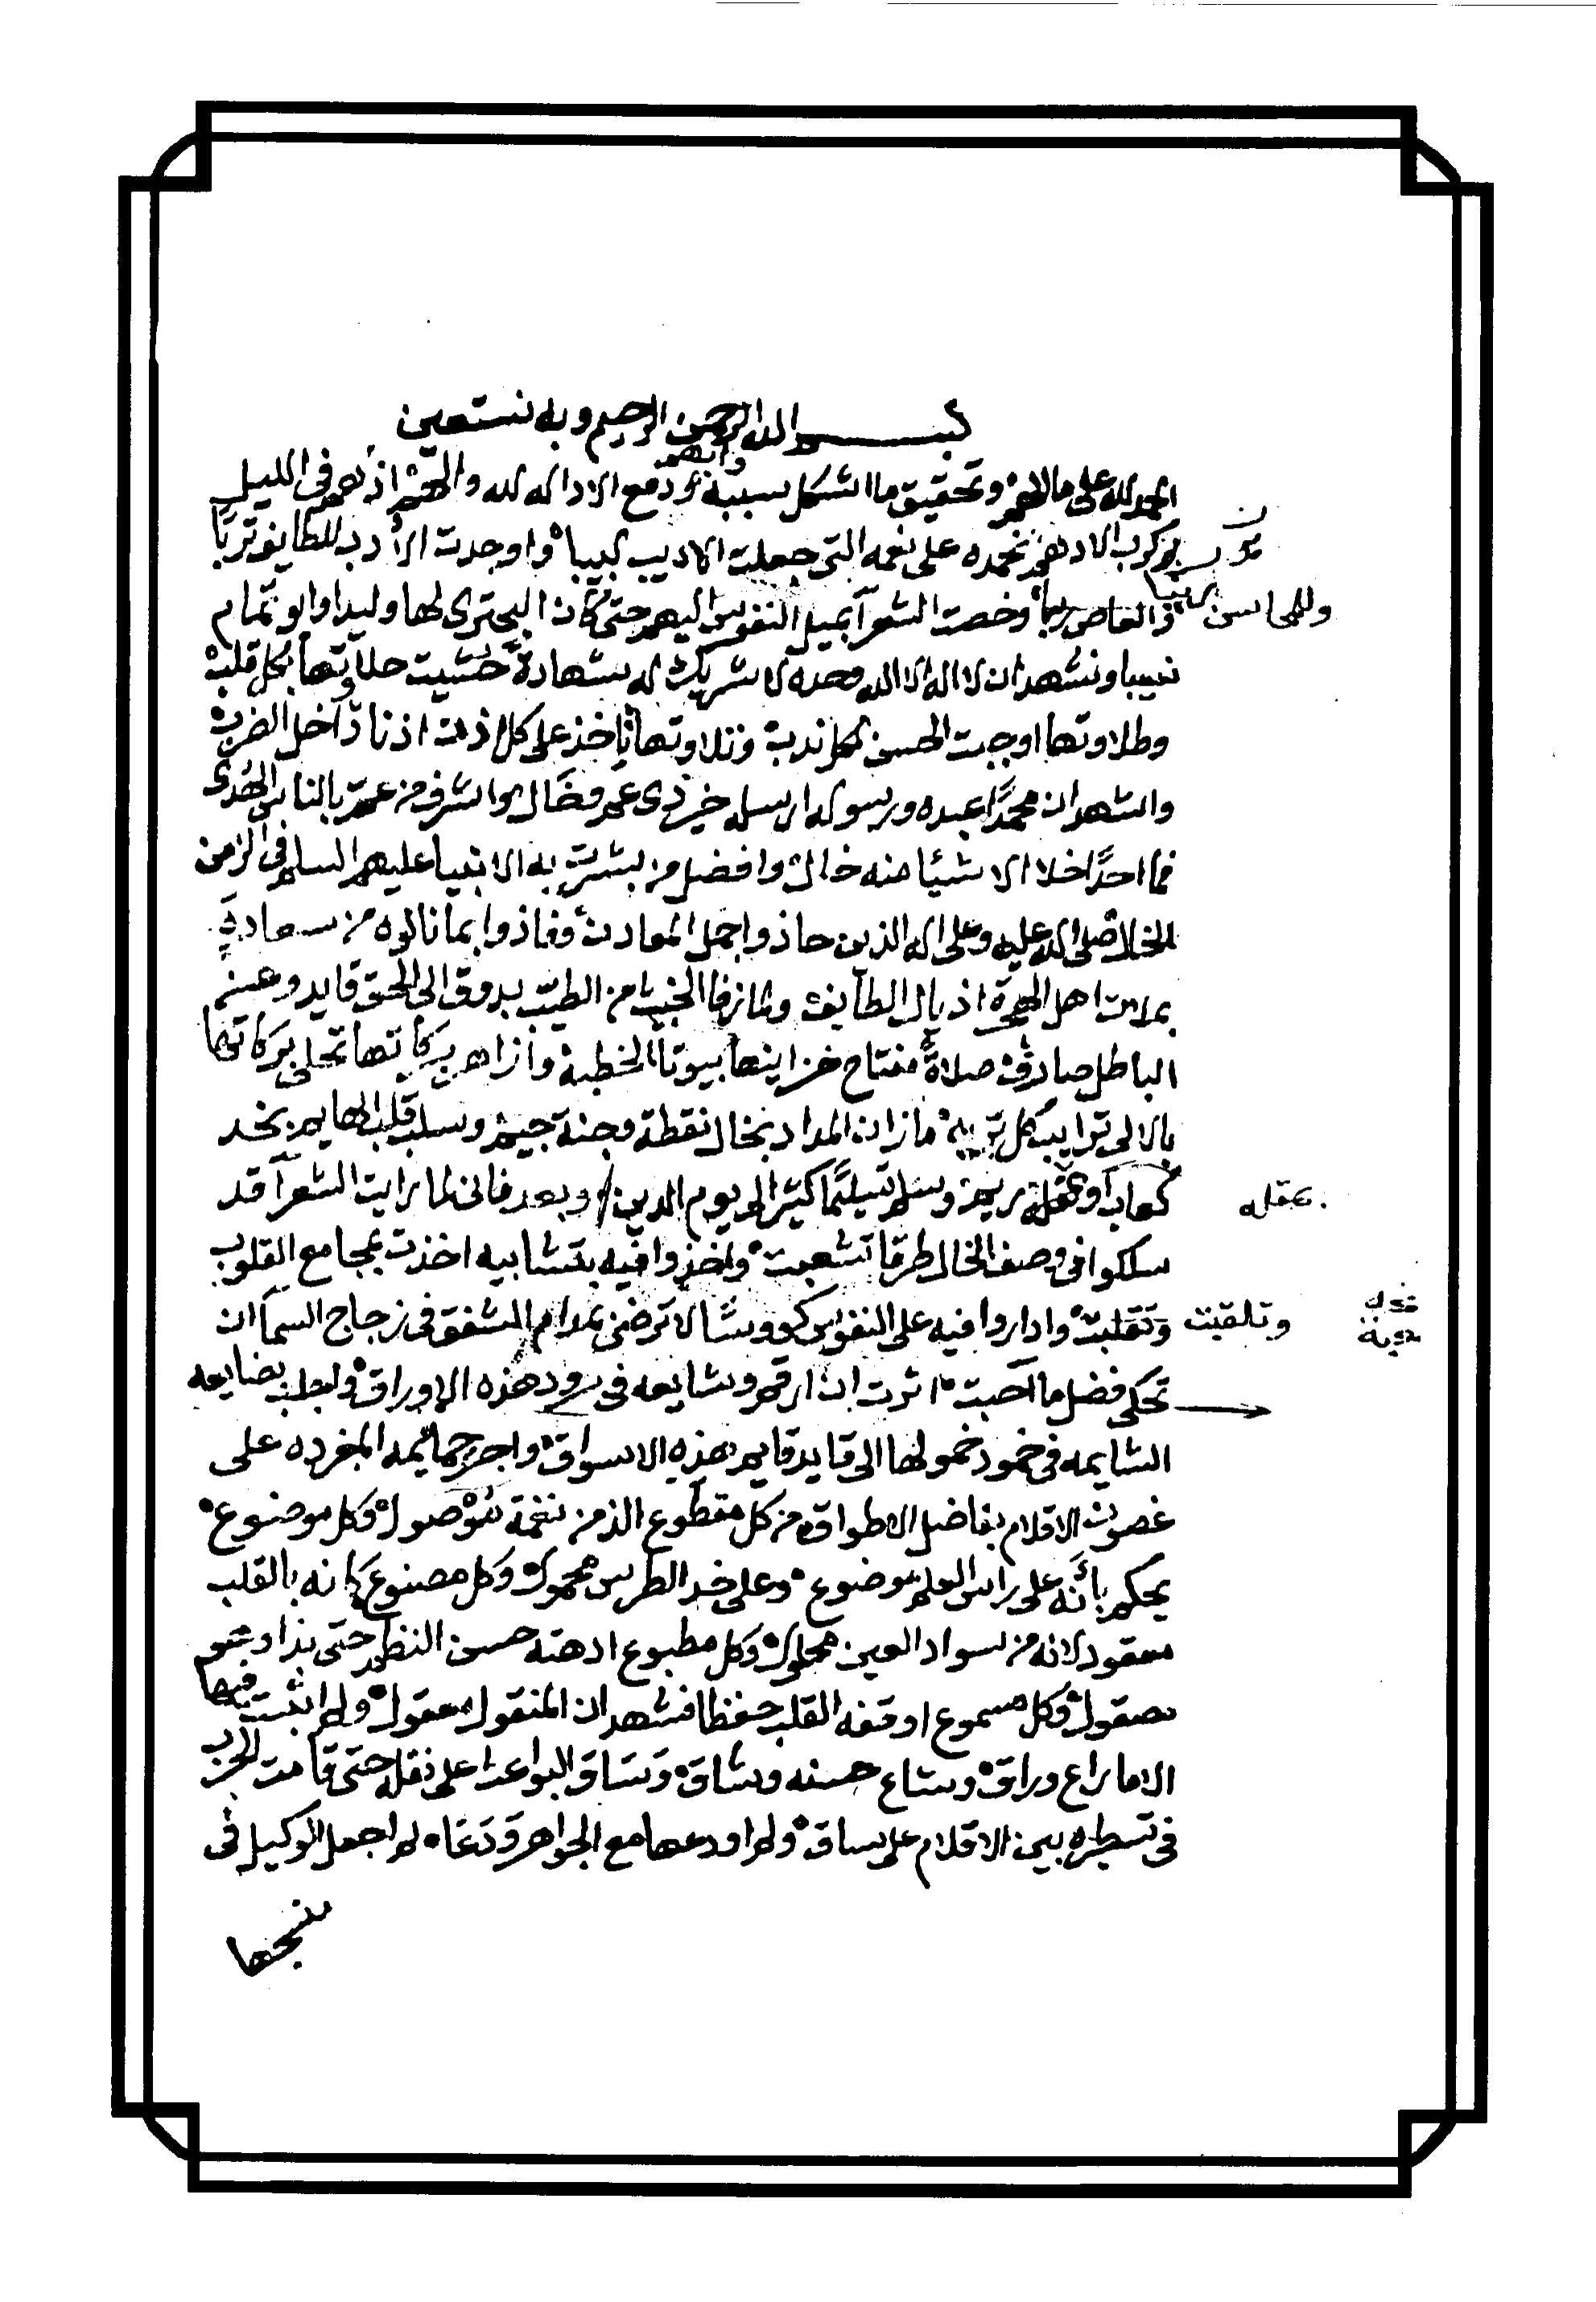 بسم الله الرحمن الرحيم وبه نستعين
الحمد لله على ما الهم وتحقيق ما اشكل سببه وابهم ودفع الاداله لله اذهم في الليل
بركوب الادهم نحمده على نعمه التي جعلت الاديب لبيبا واوجدت الادب للطايف تربا
وللمحاسن ربيبا وخصت الشعرآ بميل النفوس اليهم حتى كان البحتري لها وليدا وابو تمام
نسيبا ونشهد ان لا اله الا الله وحده لا شريك له شهادة حلاوتها بكل قلب
وطلاوتها اوجبت الحسن لكل ندبة وتلاوتها تاخذ على كل اذنا داخل الضرب
واشهد ان محمدًا عبده ورسوله ارسله خير ذي عم وخال واشرف من عم بالنا الهدى
فما احدًا خلا الا شيئا منه خال وافضل من بشرت به الانبيا عليهم السلم في الزمن
الخال صلى الله عليه وعلى اله الذين حاذوا اجمل المعادن وفازوا بما نالوه من سعادتي
اهل اذيال الطايف الخبيث من الطيب بذوق الى الحق قايد وعن
الباطل صادف صلاةً مفتاح خزاينها بيوتا الخطبة وازاهر بركاتها تحلي بركاتها
بالالي ترايب كل تربية ما زان المداد بخال نقطة وجنة جيم وسلب قلب الهايم بخد
كعاب او مقلة ريم وسلم تسليمًا كثيرا الى يوم الدين / وبعد فاني لما رايت الشعرآ قد
بمقله
سلكوا في وصف الخال طرقا تشعبت واخذوا فيه بتشابيه اخذت بمجامع القلوب
وتقلبت واداروا فيه على النفوس كووسًا لا ترضى بمدام الشفق في زجاج السمآ ان
وتلقيت
تحكي فضل ما اثرت ان ارقم وشايعه في برود هذه الاوراق واجلب بضايعه
في خمود خمولها الى قايد قايم هذه الاسواق واجر حمايمه المغرده على
غصون الاقلام بفاضل الاطواق من كل مقطوع الذ من نغمة موصول وكل موضوع
يحكم بأنه على راس العلم موضوع وعلى خد الطرس محمول وكل مصنوع كانه بالقلب
معقود لانه من سواد العين محلول وكل مطبوع ادهنه حسن النظر حتى بدا وهو
مصقول وكل مسموع اوقفه القلب حفظا فشهد ان المنقول معقول ولم اثبت فيها
الا ما راع وراق وشاع حسنه وشاق وساق البواعث على نقله حتى قامت الحرب
في تسطيره بين الاقلام على ساق ولم اودعها مع الجواهر ودعا لم اجعل الوكيل في